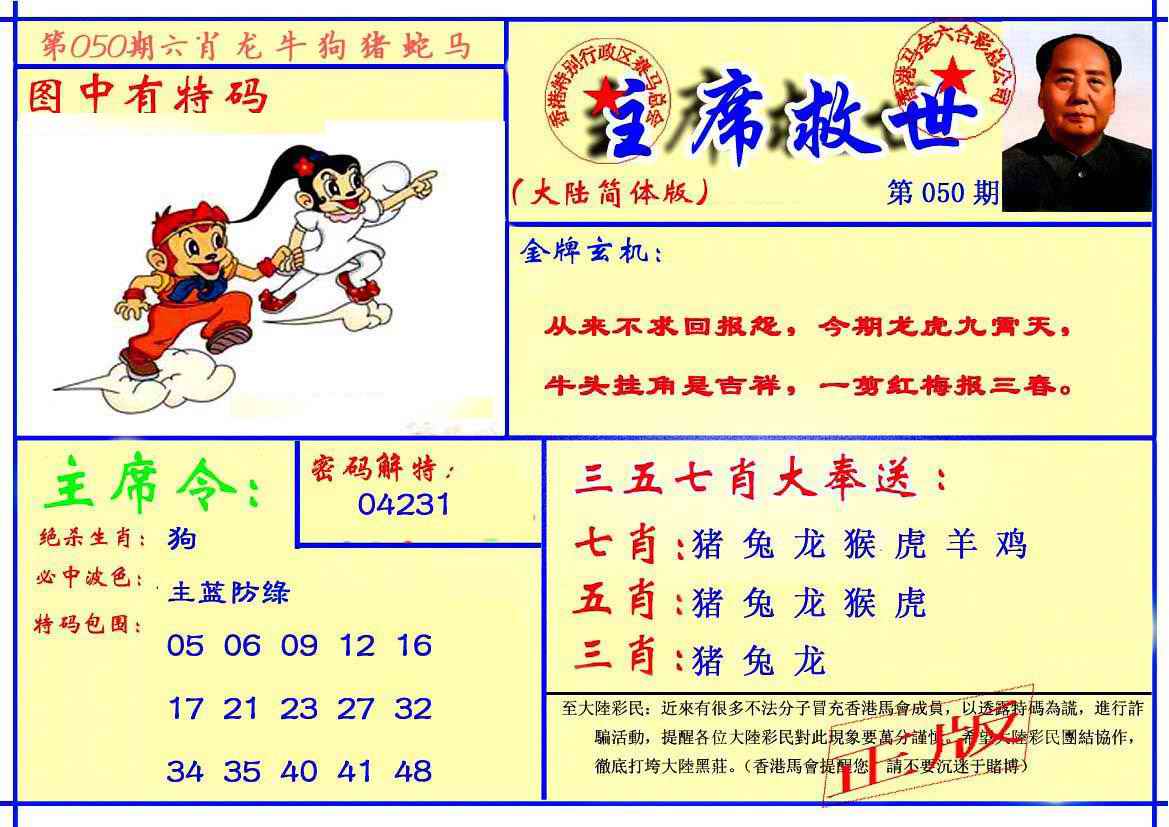 第050期六肖龙牛狗猪蛇马
图中有特码
香港特别行政区赛马总会
香港马会六合彩总公司
主席救世
（大陆简体版）
第 050 期
金牌玄机：
从来不求回报怨，今期龙虎九霄天，
牛头挂角是吉祥，一剪红梅报三春。
主席令：
绝杀生肖：狗
必中波色：主蓝防绿
特码包围：
05 06 09 12 16
17 21 23 27 32
34 35 40 41 48
密码解特：
04231
三五七肖大奉送：
七肖：猪 兔 龙 猴 虎 羊 鸡
五肖：猪 兔 龙 猴 虎
三肖：猪 兔 龙
至大陸彩民：近來有很多不法分子冒充香港馬會成員，以透露特碼為謊，進行詐
騙活動，提醒各位大陸彩民對此現象要萬分謹慎。希望大陸彩民團結協作，
徹底打垮大陸黑莊。（香港馬會提醒您，請不要沉迷于賭博）
正版